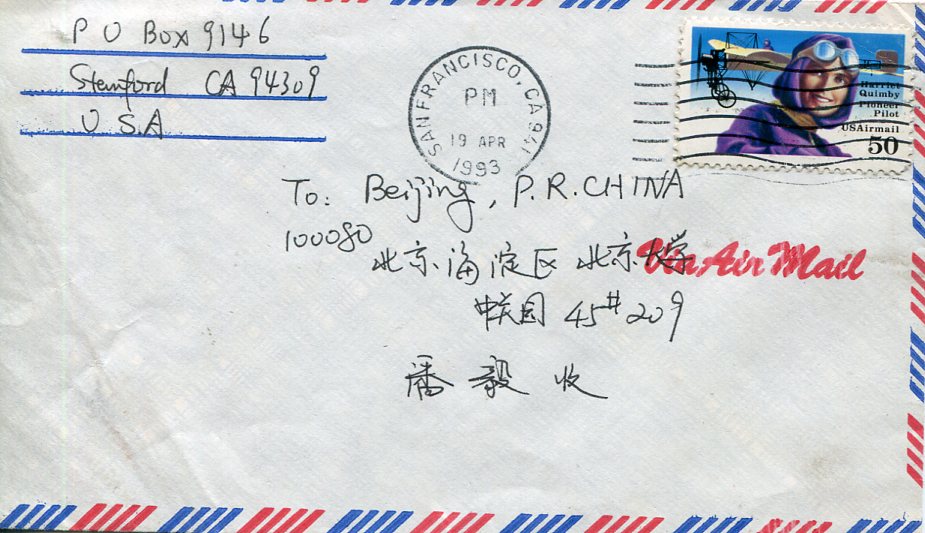 P O Box 9146
Stemford CA 94309
U S A
SAN FRANCISCO, CA 941
PM
19 APR
1993
Harriet
Quimby
Pioneer
Pilot
USAirmail
50
To: Beijing, P.R.CHINA
100080
北京海淀区北京大学
Via Air Mail
中关园 45# 209
潘毅 收